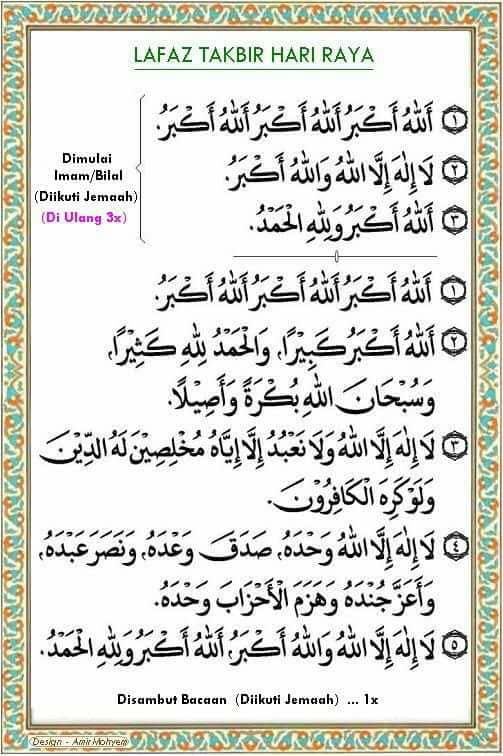 LAFAZ TAKBIR HARI RAYA
Dimulai
Imam/Bilal
(Diikuti Jemaah)
(Di Ulang 3x)
١ اَللهُ أَكْبَرُ اَللهُ أَكْبَرُ اَللهُ أَكْبَرُ.
٢ لَا إِلٰهَ إِلَّا اللهُ وَاللهُ أَكْبَرُ.
٣ اَللهُ أَكْبَرُ وَلِلّٰهِ الْحَمْدُ.
١ اَللهُ أَكْبَرُ اَللهُ أَكْبَرُ اَللهُ أَكْبَرُ.
٢ اَللهُ أَكْبَرُ كَبِيْرًا، وَالْحَمْدُ لِلّٰهِ كَثِيْرًا،
وَسُبْحَانَ اللهِ بُكْرَةً وَأَصِيْلًا.
٣ لَا إِلٰهَ إِلَّا اللهُ وَلَا نَعْبُدُ إِلَّا إِيَّاهُ مُخْلِصِيْنَ لَهُ الدِّيْنَ
وَلَوْ كَرِهَ الْكَافِرُوْنَ.
٤ لَا إِلٰهَ إِلَّا اللهُ وَحْدَهُ، صَدَقَ وَعْدَهُ، وَنَصَرَ عَبْدَهُ،
وَأَعَزَّ جُنْدَهُ وَهَزَمَ الْأَحْزَابَ وَحْدَهُ.
٥ لَا إِلٰهَ إِلَّا اللهُ وَاللهُ أَكْبَرُ، اَللهُ أَكْبَرُ وَلِلّٰهِ الْحَمْدُ.
Disambut Bacaan (Diikuti Jemaah) ... 1x
Design - Amir Mohyem